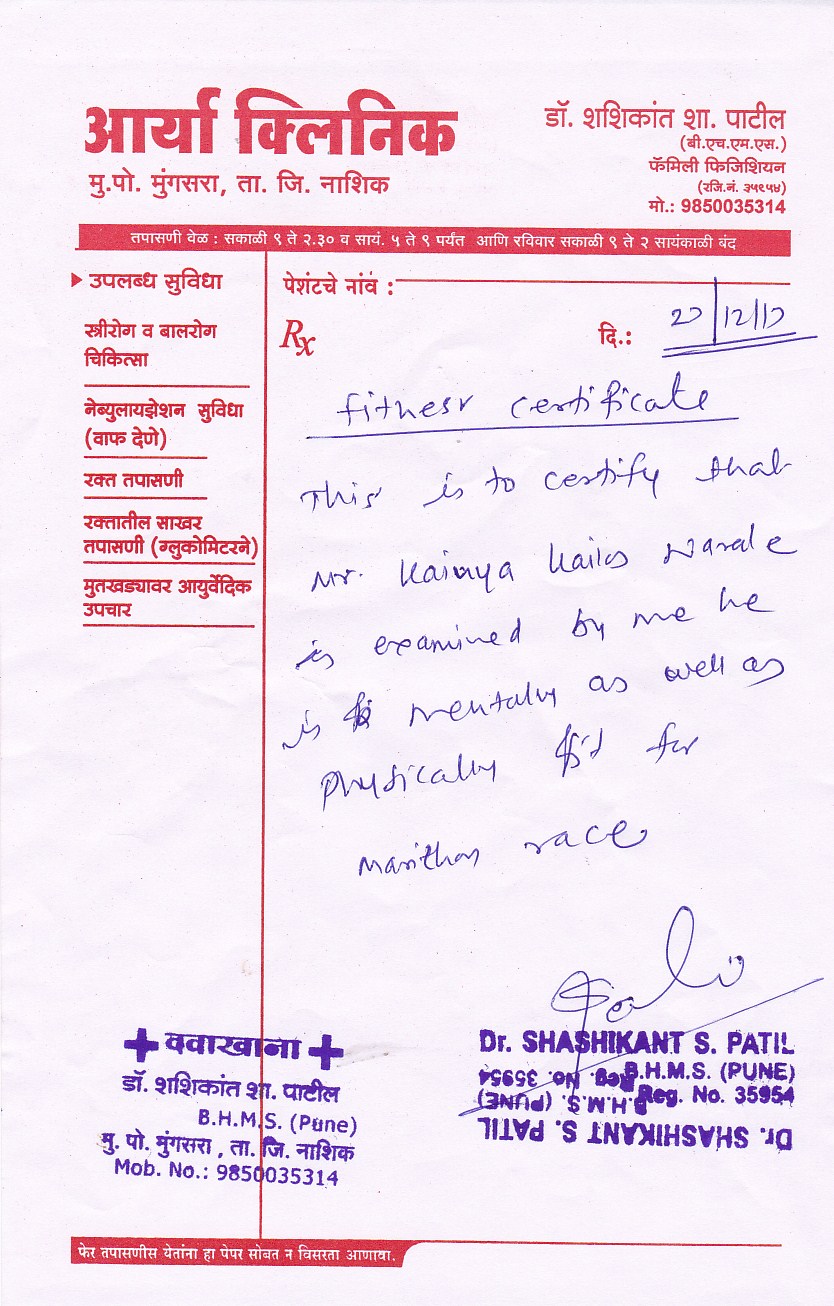 आर्या क्लिनिक
मु.पो. मुंगसरा, ता. जि. नाशिक
डॉ. शशिकांत शा. पाटील
(बी.एच.एम.एस.)
फॅमिली फिजिशियन
(रजि.नं. ३५९५४)
मो.: 9850035314
तपासणी वेळ : सकाळी ९ ते २.३० व सायं. ५ ते ९ पर्यंत आणि रविवार सकाळी ९ ते २ सायंकाळी बंद
उपलब्ध सुविधा
स्त्रीरोग व बालरोग
चिकित्सा
नेब्युलायझेशन सुविधा
(वाफ देणे)
रक्त तपासणी
रक्तातील साखर
तपासणी (ग्लुकोमिटरने)
मुतखड्यावर आयुर्वेदिक
उपचार
पेशंटचे नांव :
Rx
दि.:
fitness certificate
This is to certify that
Mr. Kailas
is examined by me he
is mentaly as well as
physically fit for
race
दवाखाना
डॉ. शशिकांत शा. पाटील
B.H.M.S. (Pune)
मु. पो. मुंगसरा, ता. जि. नाशिक
Mob. No.: 9850035314
Dr. SHASHIKANT S. PATIL
B.H.M.S. (PUNE)
Reg. No. 35954
Dr. SHASHIKANT S. PATIL
B.H.M.S. (PUNE)
Reg. No. 35954
फेर तपासणीस येतांना हा पेपर सोबत न विसरता आणावा.